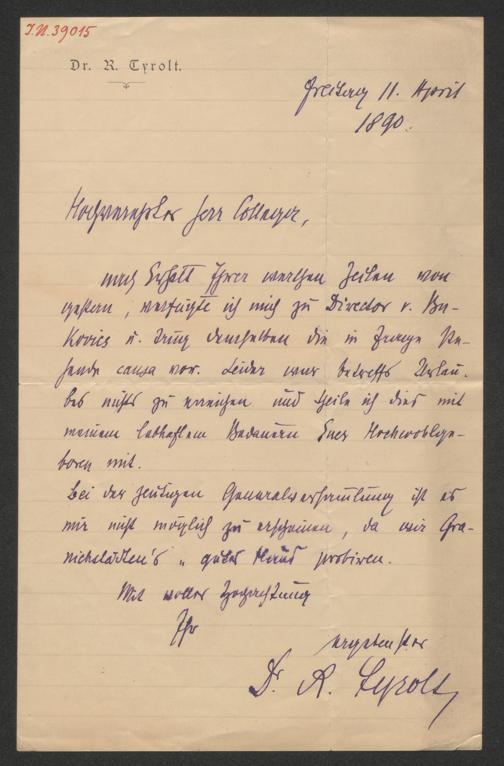 I.N. 39015
Dr. R. Tyrolt.
Freitag 11. April
1890.
Hochverehrter Herr College,
nach Erhalt Ihrer werthen Zeilen von
gestern, verfügte ich mich zu Director v. Bu-
kovics u. trug demselben die in Frage ste-
hende causa vor. Leider war betreffs Urlau-
bes nichts zu erreichen und theile ich dies mit
meinem lebhaftem Bedauern Euer Hochwohlge-
boren mit.
Bei der heutigen Generalversammlung ist es
mir nicht möglich zu erscheinen, da wir Gra-
nichstädten's „ gutes Haus probiren.
Mit voller Hochachtung
Ihr
ergebenster
Dr. R. Tyrolt